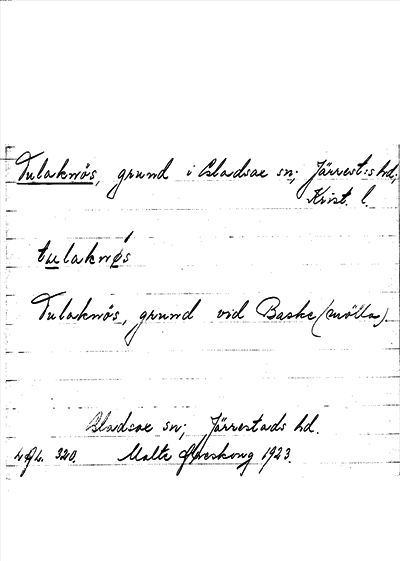 Tulaknös, grund i Gladsax sn; Järrest:s hd;
Krist. l.
tulaknǿs
Tulaknös, grund vid Baske(mölla).
Gladsax sn; Järrestads hd.
320. Malte Areskoug 1923.